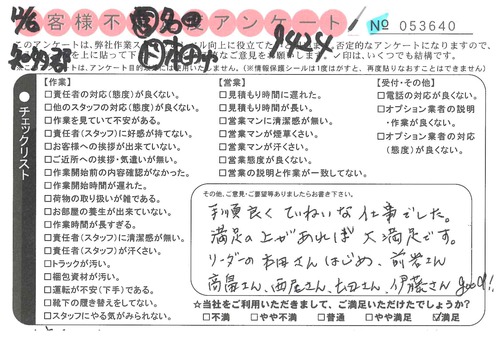 客様不満度アンケート
№ 053640
このアンケートは、弊社作業ス
向上に役立てた
否定的なアンケートになりますので、
ご意見をお願いします。✓印は、いくつでも結構です。
アンケート目的以外には使用致しません。(※情報保護シールは1度はがすと、再度貼りなおすことはできません)
チェックリスト
【作業】
□責任者の対応(態度)が良くない。
□他のスタッフの対応(態度)が良くない。
□作業を見ていて不安がある。
□責任者(スタッフ)に好感が持てない。
□お客様への挨拶が出来ていない。
□ご近所への挨拶・気遣いが無い。
□作業開始前の内容確認がなかった。
□作業開始時間が遅れた。
□荷物の取り扱いが雑である。
□お部屋の養生が出来ていない。
□作業時間が長すぎる。
□責任者(スタッフ)に清潔感が無い。
□責任者(スタッフ)が汗くさい。
□トラックが汚い。
□梱包資材が汚い。
□運転が不安(下手)である。
□靴下の履き替えをしてない。
□スタッフにやる気がみられない。
【営業】
□見積もり時間に遅れた。
□見積もり時間が長い。
□営業マンに清潔感が無い。
□営業マンが煙草くさい。
□営業マンが汗くさい。
□営業態度が良くない。
□営業の説明と作業が一致してない。
【受付・その他】
□電話の対応が良くない。
□オプション業者の説明
・作業が良くない。
□オプション業者の対応
(態度)が良くない。
その他、ご意見・ご要望等ありましたらお書き下さい。
手順良くていねいな仕事でした。
満足の上があれば大満足です。
リーダーの本田さんはじめ、前岩さん
高畠さん、西尾さん、吉田さん、伊藤さん good!!
☆当社をご利用いただきまして、ご満足いただけたでしょうか?
□不満 □やや不満 □普通 □やや満足 ☑満足